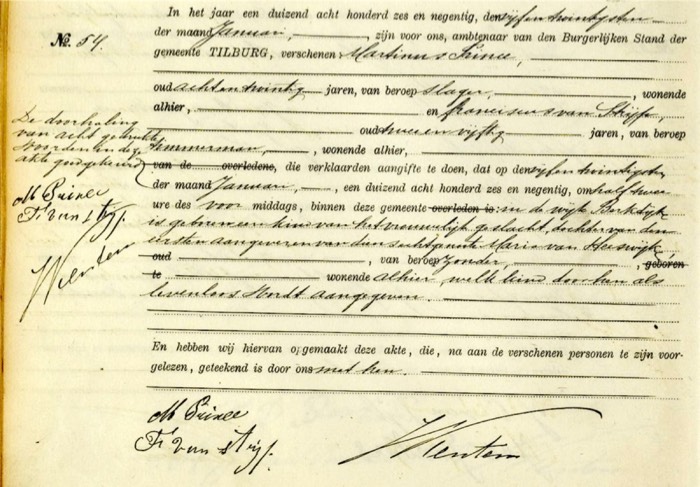 In het jaar een duizend acht honderd zes en negentig, den vijfentwintigsten
No. 54.
der maand Januari, zijn voor ons, ambtenaar van den Burgerlijken Stand der
gemeente TILBURG, verschenen Martinus Prince,
oud achtentwintig jaren, van beroep slager, wonende
alhier, en Franciscus van Strijp,
oud tweeenvijftig jaren, van beroep
De doorhaling
van acht gedrukte
woorden in deze
akte goedgekeurd
M Prince
Fr van Strijp.
timmerman, wonende alhier,
van de overledene, die verklaarden aangifte te doen, dat op den vijfentwintigsten
der maand Januari, een duizend acht honderd zes en negentig, om half twee
ure des voor middags, binnen deze gemeente overleden is: in de wijk Berkdijk
is geboren een kind van het vrouwelijk geslacht, dochter van den
eersten aangever en van dens echtgenoote Maria van Heeswijk
oud, van beroep zonder, geboren
te wonende alhier, welk kind door hen als
levenloos wordt aangegeven.
En hebben wij hiervan opgemaakt deze akte, die, na aan de verschenen personen te zijn voor-
gelezen, geteekend is door ons met hen.
M Prince
Fr van Strijp.